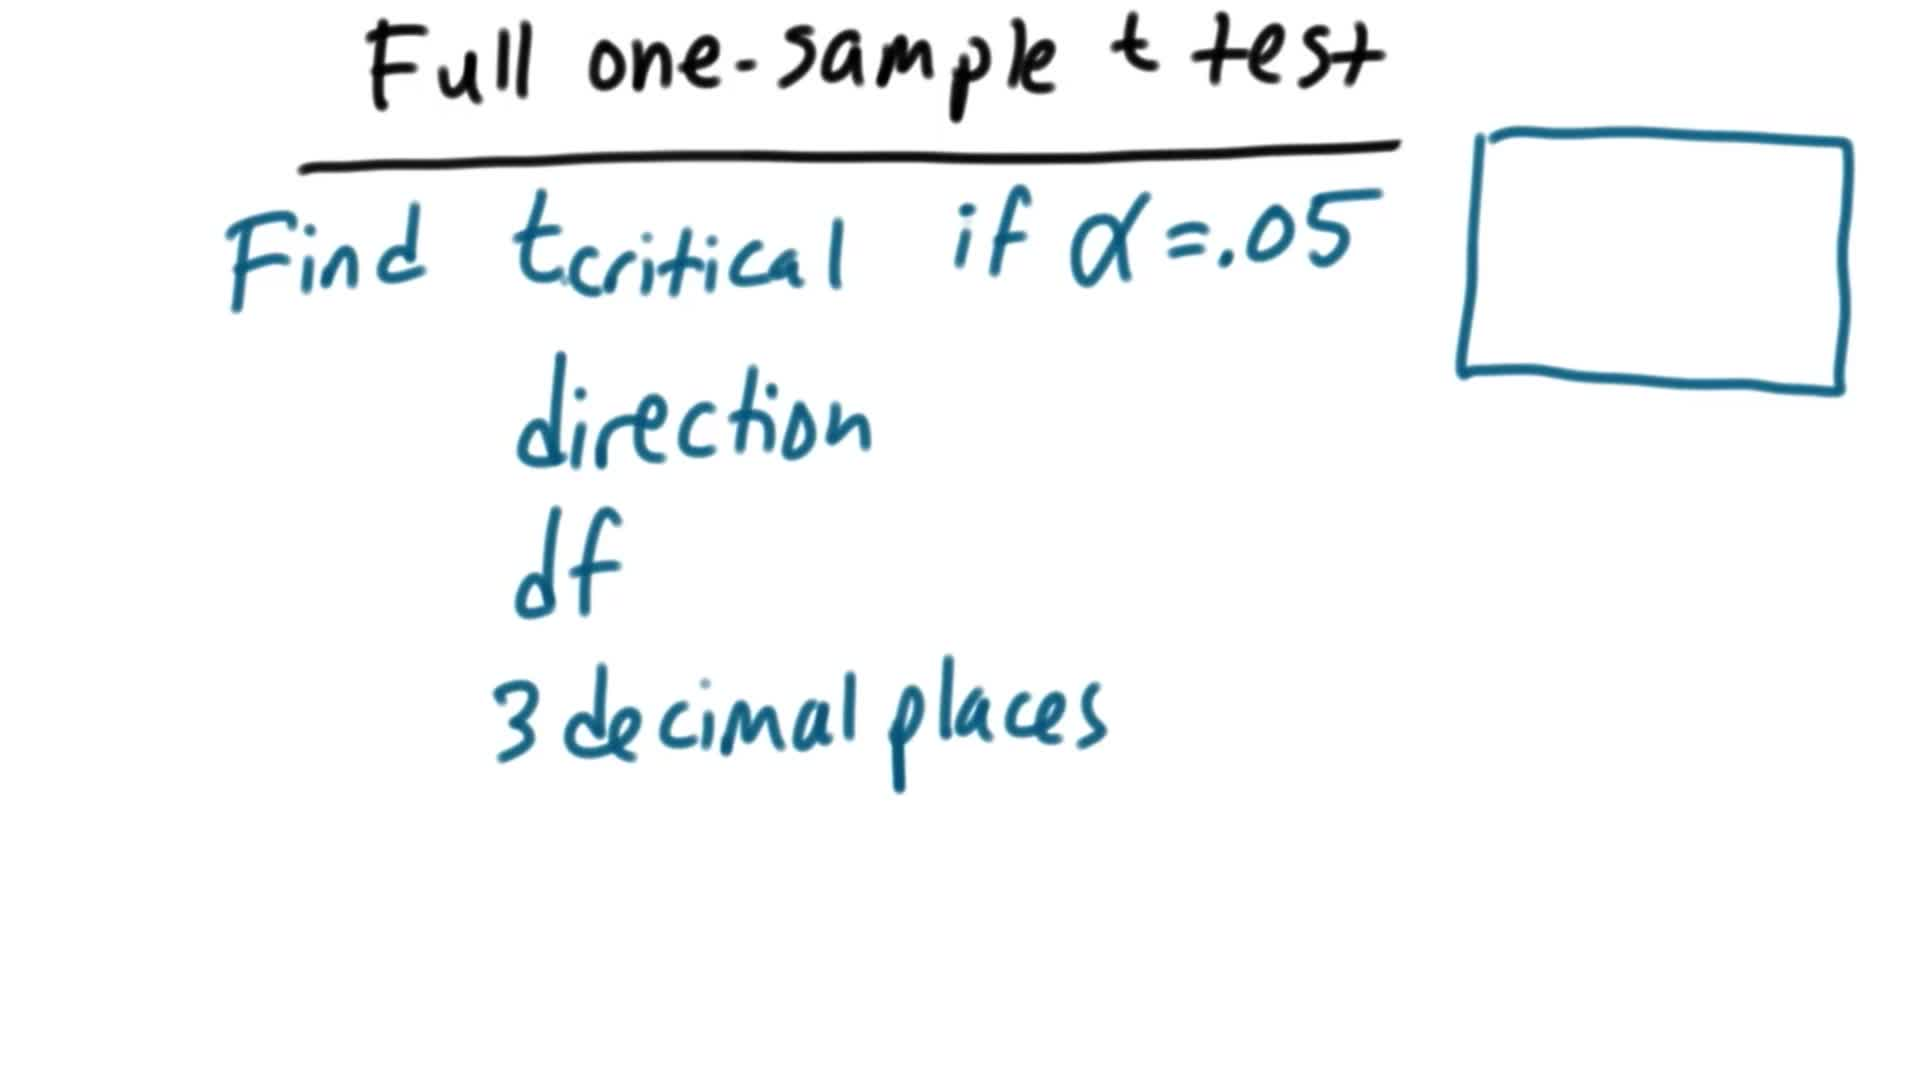 Full one-sample t test
Find tcritical if α=.05
direction
df
3 decimal places